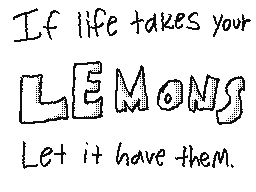 If life takes your
LEMONS
Let it have them.